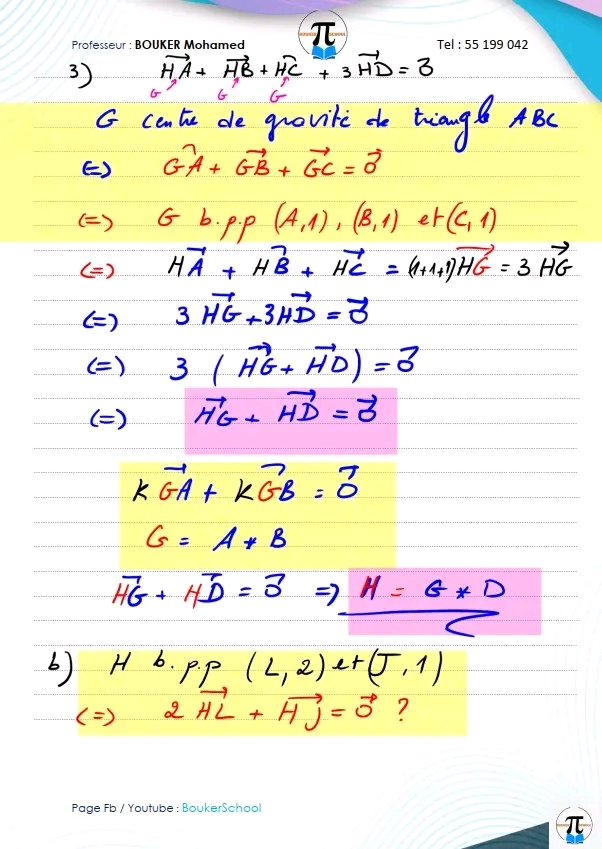 Professeur : BOUKER Mohamed
π
BOUKER SCHOOL
Tel : 55 199 042
3) HA + HB + HC + 3 HD = 0
G G G
G centre de gravité de triangle ABC
(=) GA + GB + GC = 0
(=) G b.p.p (A,1), (B,1) et (C,1)
(=) HA + HB + HC = (1+1+1) HG = 3 HG
(=) 3 HG + 3HD = 0
(=) 3 ( HG + HD ) = 0
(=) HG + HD = 0
K GA + K GB = 0
G = A * B
HG + HD = 0 => H = G * D
b) H b.p.p (L, 2) et (J, 1)
(=) 2 HL + HJ = 0 ?
Page Fb / Youtube : BoukerSchool
π